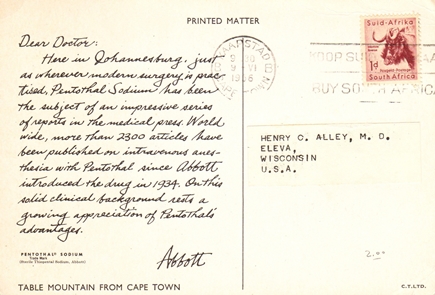 PRINTED MATTER
Dear Doctor:
Here in Johannesburg, just
as wherever modern surgery is prac-
tised, Pentothal Sodium has been
the subject of an impressive series
of reports in the medical press. World
wide, more than 2300 articles have
been published on intravenous anes-
thesia with Pentothal since Abbott
introduced the drug in 1934. On this
solid clinical background rests a
growing appreciation of Pentothal's
advantages.
Abbott
PENTOTHAL® SODIUM
Trade Mark
(Sterile Thiopental Sodium, Abbott)
TABLE MOUNTAIN FROM CAPE TOWN
KAAPSTAD
VI
1956
Suid-Afrika
1d
Posgeld Postage
South Africa
BUY SOUTH AFRICA
HENRY C. ALLEY, M. D.
ELEVA,
WISCONSIN
U.S.A.
2.00
C.T.LTD.